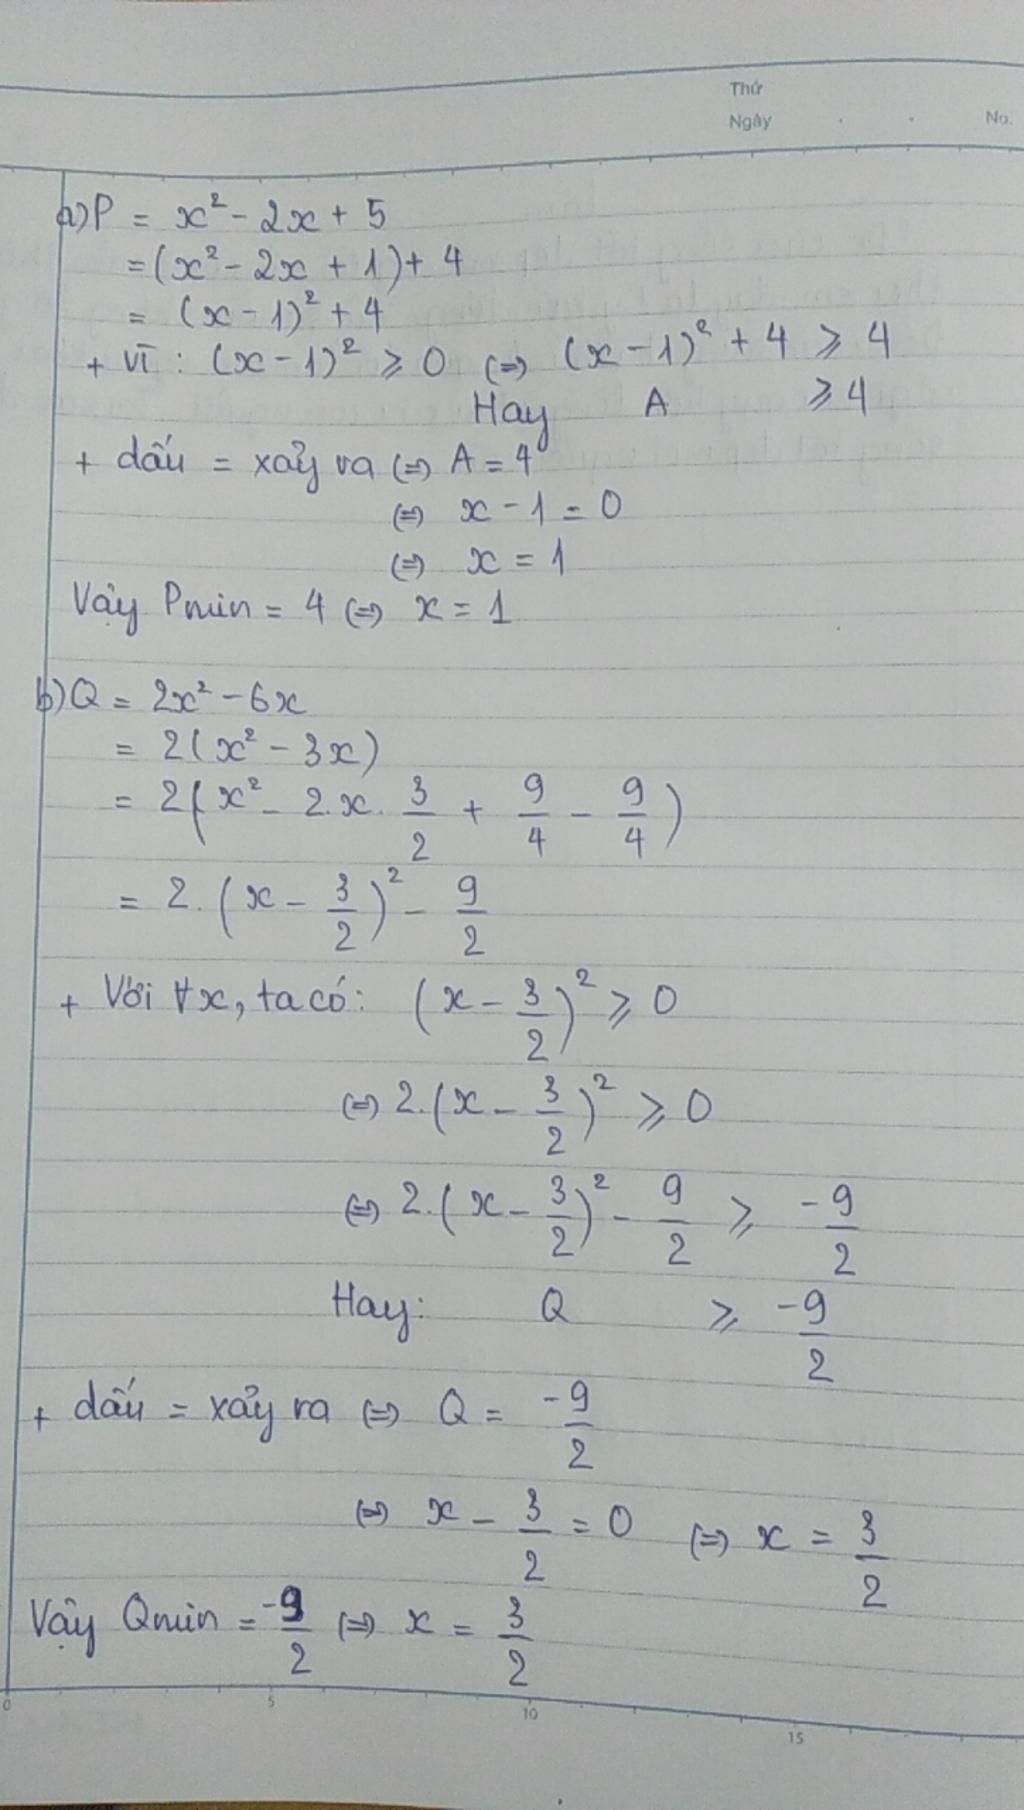 Thứ
Ngày . . No.
a) P = x² - 2x + 5
= (x² - 2x + 1) + 4
= (x - 1)² + 4
+ Vì : (x - 1)² ⩾ 0 (=) (x - 1)² + 4 ⩾ 4
Hay A ⩾ 4
+ dấu = xảy ra (=) A = 4
(=) x - 1 = 0
(=) x = 1
Vậy Pmin = 4 (=) x = 1
b) Q = 2x² - 6x
= 2(x² - 3x)
= 2(x² - 2.x. 3/2 + 9/4 - 9/4)
= 2.(x - 3/2)² - 9/2
+ Với ∀x, ta có: (x - 3/2)² ⩾ 0
(=) 2.(x - 3/2)² ⩾ 0
(=) 2.(x - 3/2)² - 9/2 ⩾ -9/2
Hay: Q ⩾ -9/2
+ dấu = xảy ra (=) Q = -9/2
(=) x - 3/2 = 0 (=) x = 3/2
Vậy Qmin = -9/2 (=) x = 3/2
0 5 10 15